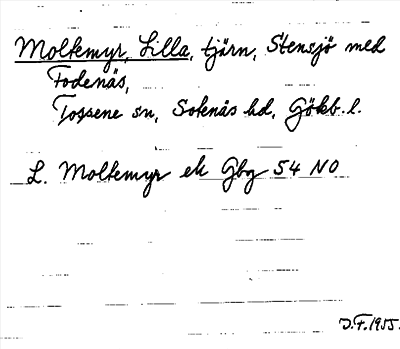 Moltemyr, Lilla, tjärn, Stensjö med
Todenäs,
Tossene sn, Sotenäs hd, Gökb. l.
L. Moltemyr ek Gbg 54 NO
J.F. 1955.